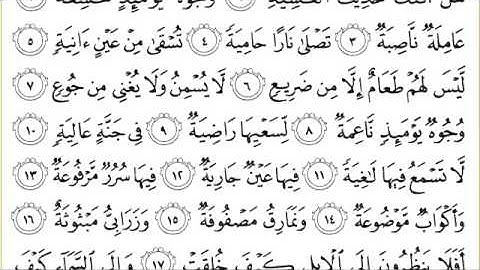 هَلۡ أَتَىٰكَ حَدِيثُ ٱلۡغَٰشِيَةِ ١ وُجُوهٞ يَوۡمَئِذٍ خَٰشِعَةٌ ٢
عَامِلَةٞ نَّاصِبَةٞ ٣ تَصۡلَىٰ نَارًا حَامِيَةٗ ٤ تُسۡقَىٰ مِنۡ عَيۡنٍ ءَانِيَةٖ ٥
لَّيۡسَ لَهُمۡ طَعَامٌ إِلَّا مِن ضَرِيعٖ ٦ لَّا يُسۡمِنُ وَلَا يُغۡنِي مِن جُوعٖ ٧
وُجُوهٞ يَوۡمَئِذٖ نَّاعِمَةٞ ٨ لِّسَعۡيِهَا رَاضِيَةٞ ٩ فِي جَنَّةٍ عَالِيَةٖ ١٠
لَّا تَسۡمَعُ فِيهَا لَٰغِيَةٗ ١١ فِيهَا عَيۡنٞ جَارِيَةٞ ١٢ فِيهَا سُرُرٞ مَّرۡفُوعَةٞ ١٣
وَأَكۡوَابٞ مَّوۡضُوعَةٞ ١٤ وَنَمَارِقُ مَصۡفُوفَةٞ ١٥ وَزَرَابِيُّ مَبۡثُوثَةٌ ١٦
أَفَلَا يَنظُرُونَ إِلَى ٱلۡإِبِلِ كَيۡفَ خُلِقَتۡ ١٧ وَإِلَى ٱلسَّمَآءِ كَيۡفَ